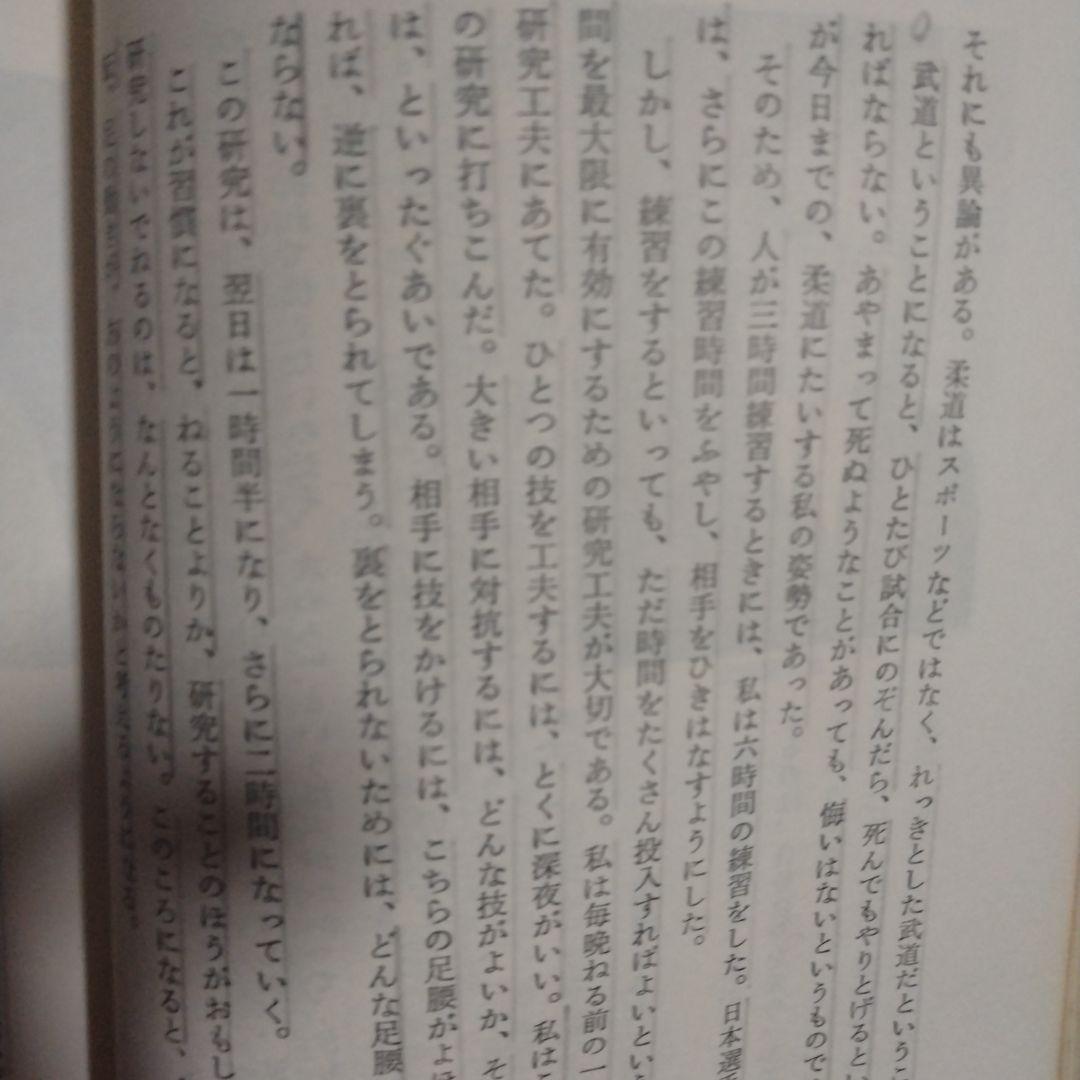 それにも異論がある。柔道はスポーツなどではなく、れっきとした武道だというこ
武道ということになると、ひとたび試合にのぞんだら、死んでもやりとげるとい
ればならない。あやまって死ぬようなことがあっても、悔いはないというもので
が今日までの、柔道にたいする私の姿勢であった。
そのため、人が三時間練習するときには、私は六時間の練習をした。日本選手
は、さらにこの練習時間をふやし、相手をひきはなすようにした。
しかし、練習をするといっても、ただ時間をたくさん投入すればよいという
間を最大限に有効にするための研究工夫が大切である。私は毎晩ねる前の一
研究工夫にあてた。ひとつの技を工夫するには、とくに深夜がいい。私は
の研究に打ちこんだ。大きい相手に対抗するには、どんな技がよいか、そ
は、といったぐあいである。相手に技をかけるには、こちらの足腰がよほ
れば、逆に裏をとられてしまう。裏をとられないためには、どんな足腰
ならない。
この研究は、翌日は一時間半になり、さらに二時間になっていく。
これが習慣になると、ねることよりか、研究することのほうがおもし
研究しないでねるのは、なんとなくものたりない。このころになると、